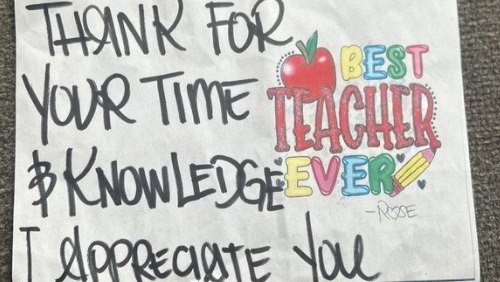 THANK FOR
YOUR TIME
& KNOWLEDGE
I APPRECIATE YOU
BEST
TEACHER
EVER
-ROSE